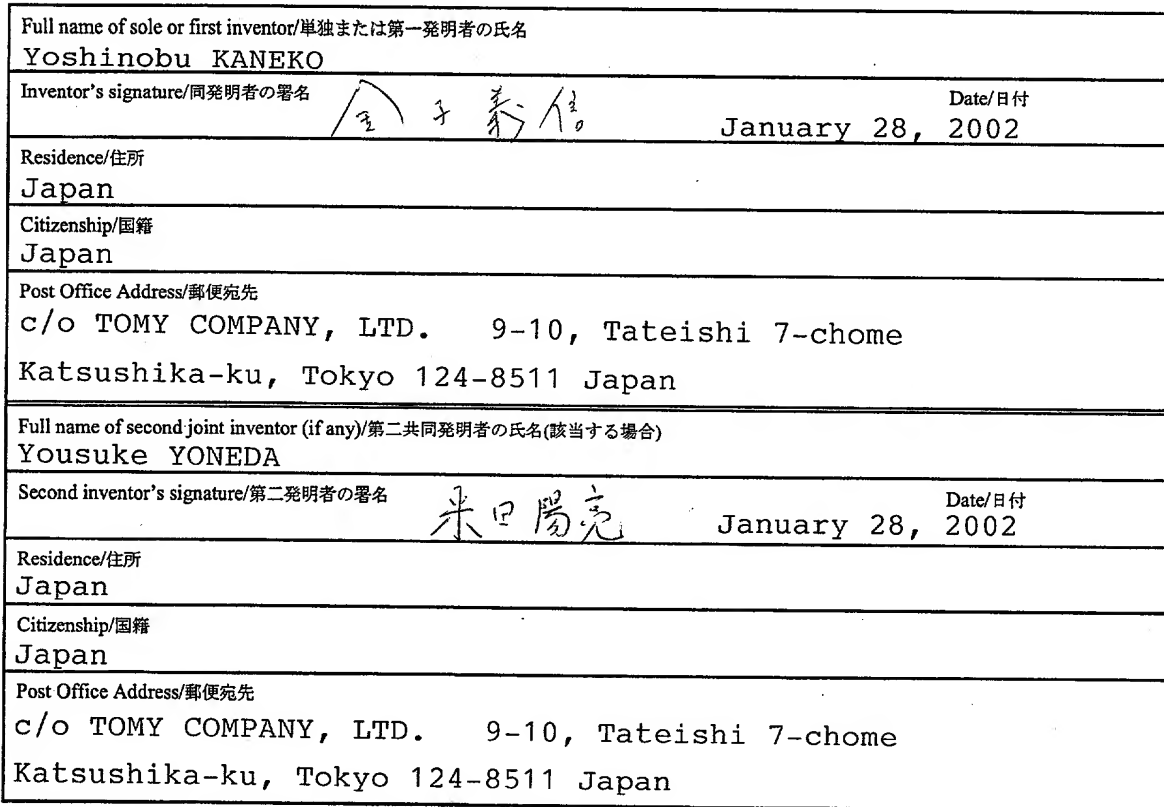 Full name of sole or first inventor/単独または第一発明者の氏名
Yoshinobu KANEKO
Inventor's signature/同発明者の署名 金子義信 January 28, 2002 Date/日付
Residence/住所
Japan
Citizenship/国籍
Japan
Post Office Address/郵便宛先
c/o TOMY COMPANY, LTD. 9-10, Tateishi 7-chome
Katsushika-ku, Tokyo 124-8511 Japan
Full name of second joint inventor (if any)/第二共同発明者の氏名(該当する場合)
Yousuke YONEDA
Second inventor's signature/第二発明者の署名 米田陽亮 January 28, 2002 Date/日付
Residence/住所
Japan
Citizenship/国籍
Japan
Post Office Address/郵便宛先
c/o TOMY COMPANY, LTD. 9-10, Tateishi 7-chome
Katsushika-ku, Tokyo 124-8511 Japan